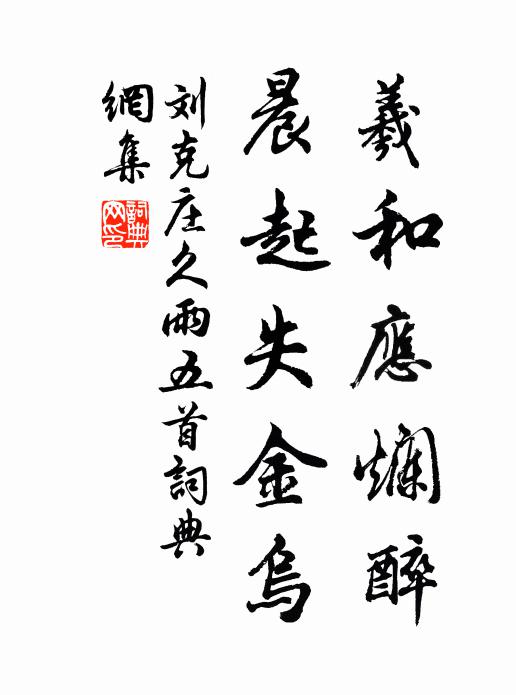 羲和應爛醉
晨起失金烏
刘克庄久雨五首詞典
網集
詞典
网印